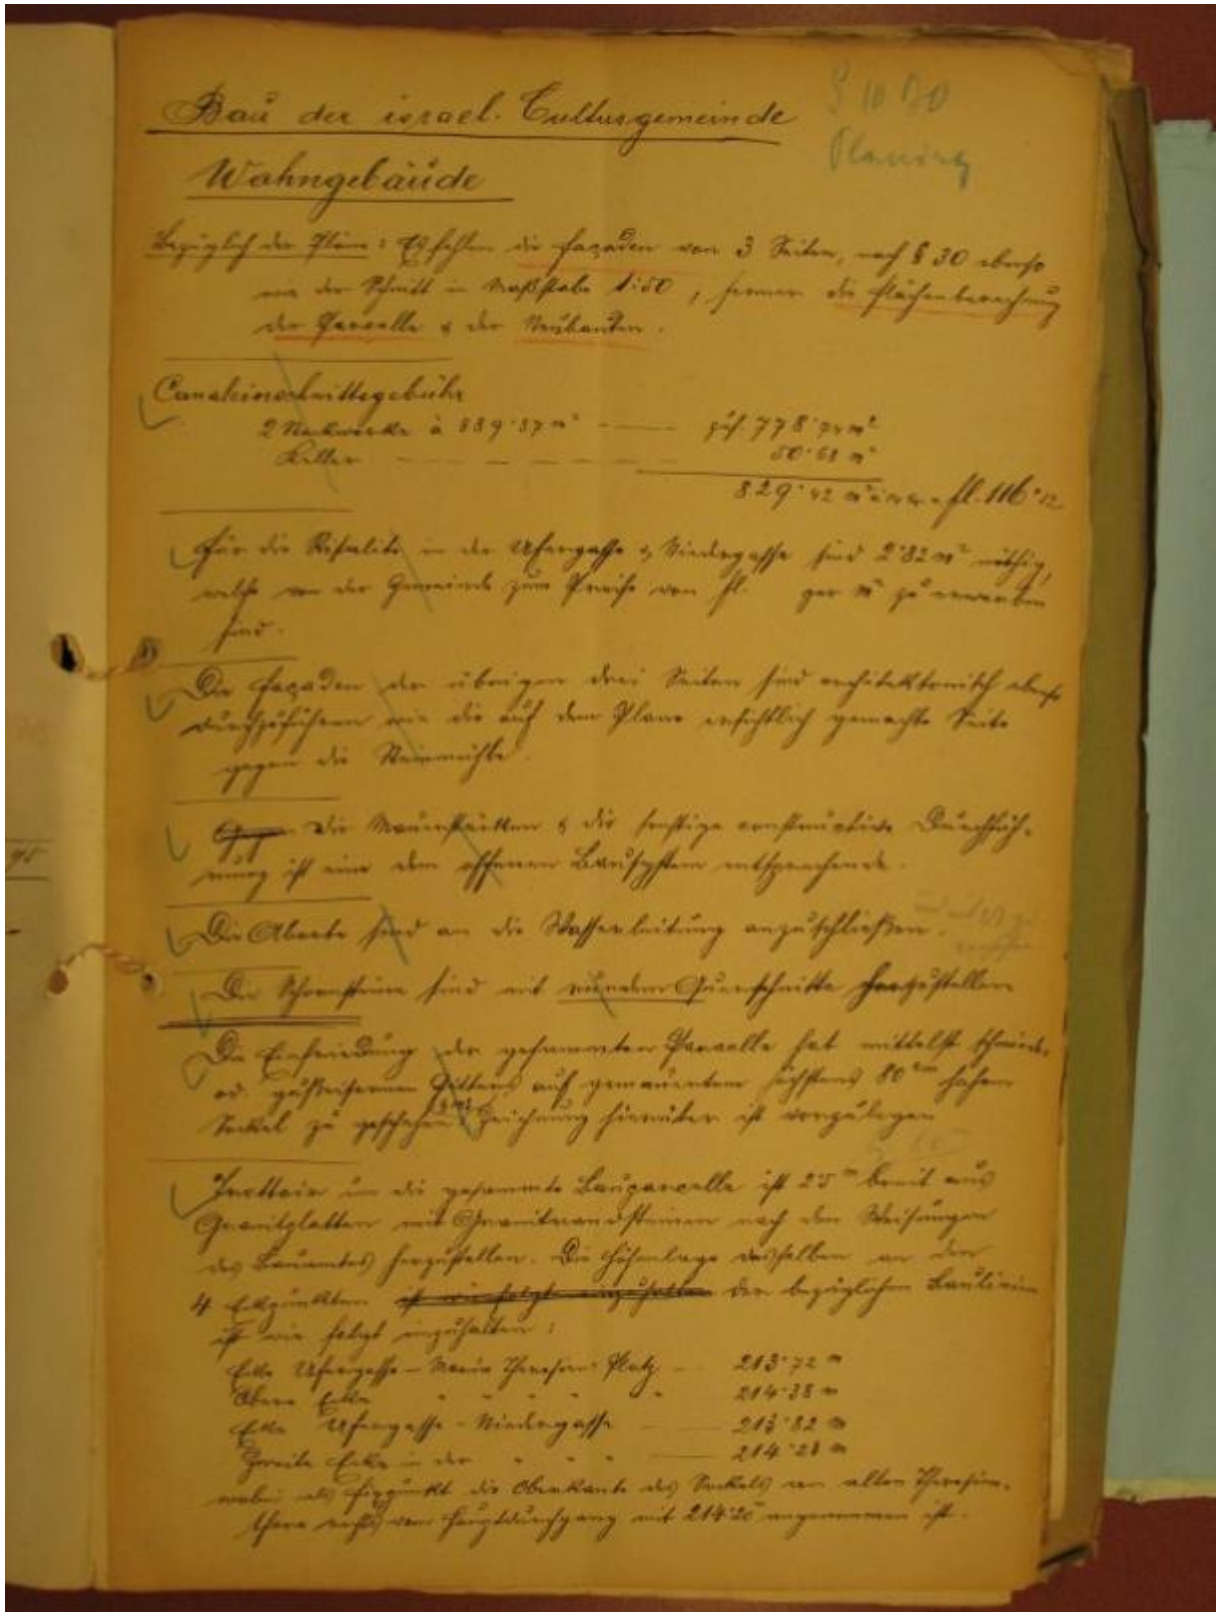 § 10 BO
Bau der israel. Cultusgemeinde
Planirg
Wohngebäude
Bezüglich der Pläne: Es fehlen die Façaden von 3 Seiten, nach § 30 ebenso
wie der Schnitt im Maßstabe 1:50, ferner die Flächenberechnung
der Parcelle & der Neubauten.
Canaleinschnittsgebühr
2 Stockwerke à 389·37 m² zus. 778·74 m²
Keller 50·68 m²
829·42 m² fl. 116·12
Für die Risalite in der Ufergasse & Niedergasse sind 2·82 m² nöthig,
welche von der Gemeinde zum Preise von fl. per m² zu erwerben
sind.
Die Façaden der übrigen drei Seiten sind architektonisch ebenso
durchzuführen wie die auf dem Plane ersichtlich gemachte Seite
gegen die Steinmühle.
Die Mauerstärken & die sonstige constructive Durchfüh-
rung ist eine dem offenen Bausystem entsprechende.
Die Aborte sind an die Wasserleitung anzuschließen.
Die Schornsteine sind mit rundem Querschnitte herzustellen
Die Einfriedung der gesammten Parcelle hat mittelst schmiede-
od. gußeisernen Gitters auf gemauertem höchstens 80 cm hohem
Sockel zu geschehen Zeichnung hierüber ist vorzulegen
Trottoir um die gesammte Bauparcelle ist 2·5 m breit aus
Granitplatten mit Granitrandsteinen nach den Weisungen
des Bauamtes herzustellen. Die Höhenlage desselben an den
4 Eckpunkten ist wie folgt einzuhalten der bezüglichen Baulinien
ist wie folgt einzuhalten:
Ecke Ufergasse - Maria Theresien Platz 213·72 m
Obere Ecke " " " " 214·38 m
Ecke Ufergasse - Niedergasse 213·82 m
Zweite Ecke in der " " " 214·28 m
wobei als Fixpunkt die Oberkante des Sockels am alten Theresien-
thore rechts vom Hauptdurchgang mit 214·25 angenommen ist.